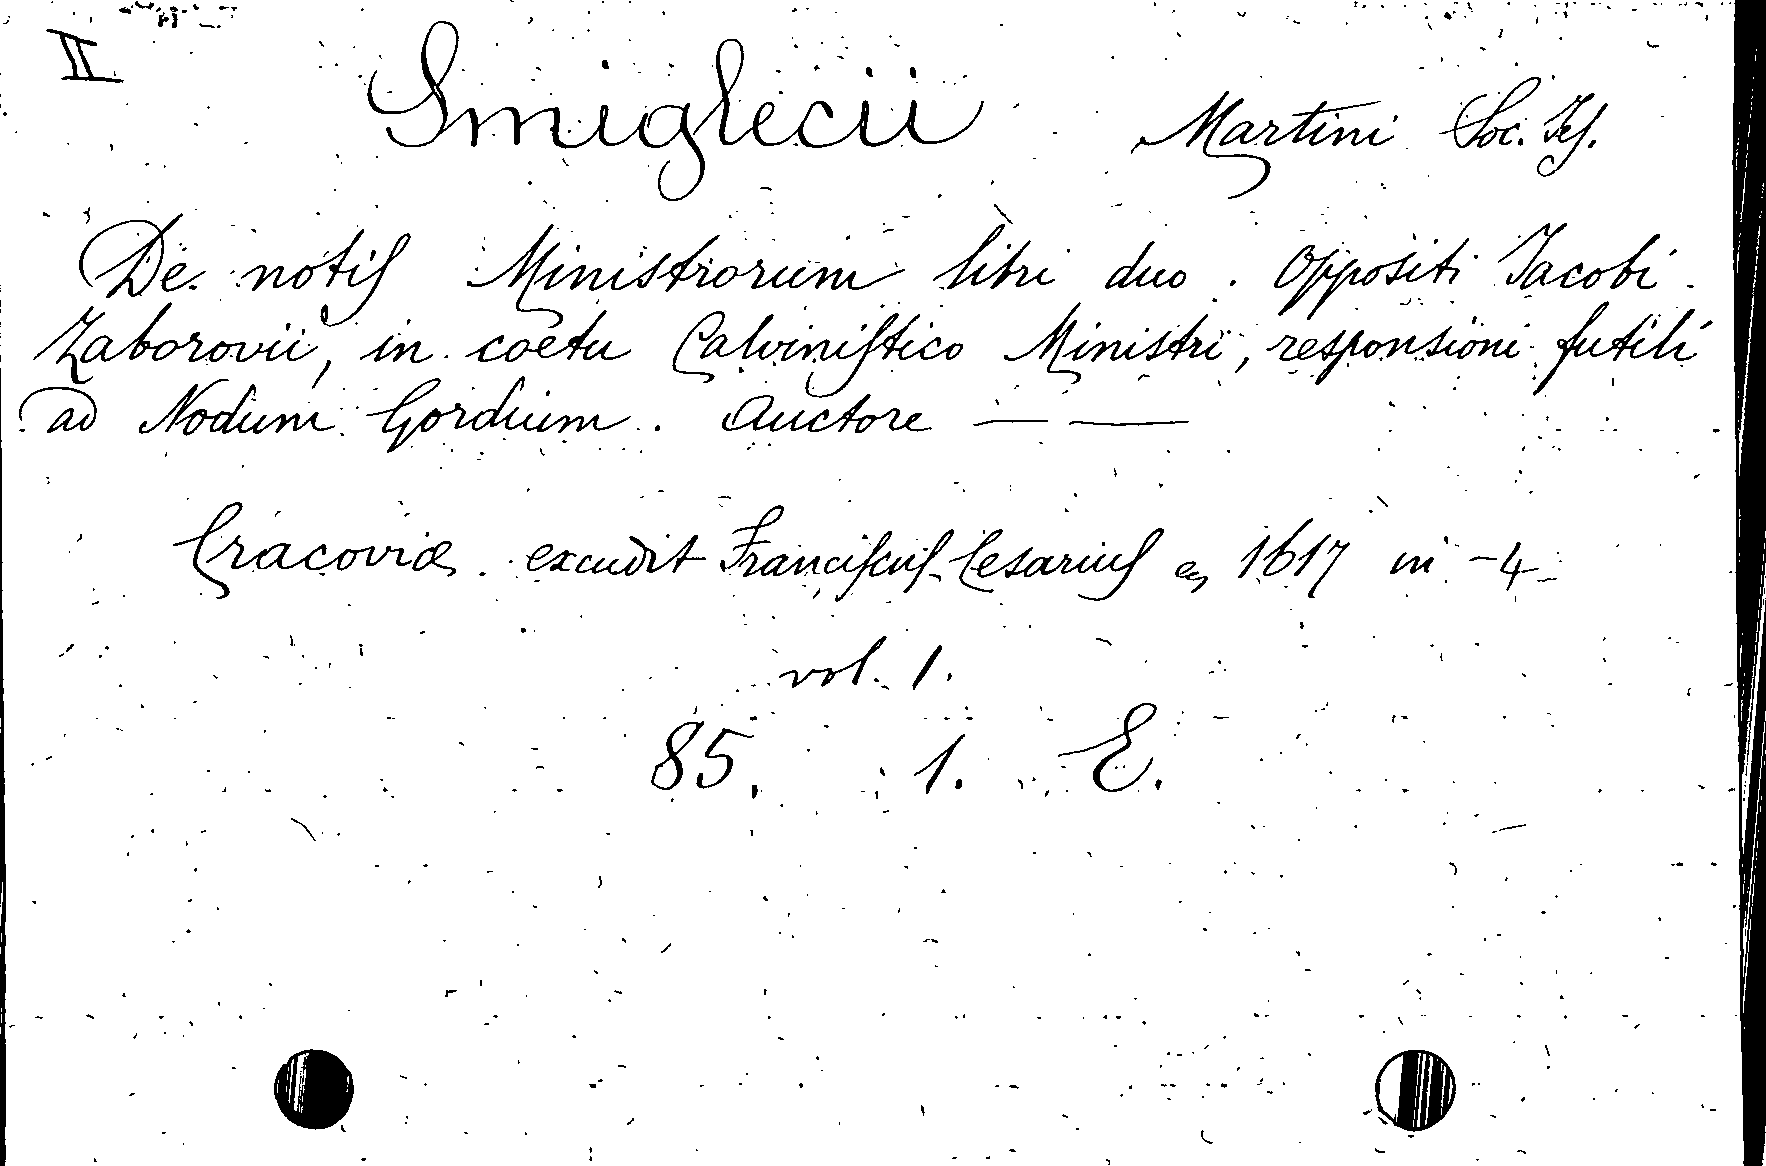 II
Smiglecii Martini Soc. Jes.
De notis Ministrorum libri duo. Oppositi Jacobi
Zaborovii, in coetu Calvinistico Ministri, responsioni futili
ad Nodum Gordium. Auctore — —
Cracoviæ excudit Franciscus Cesarius 1617 in -4
vol. 1.
85. 1. E.